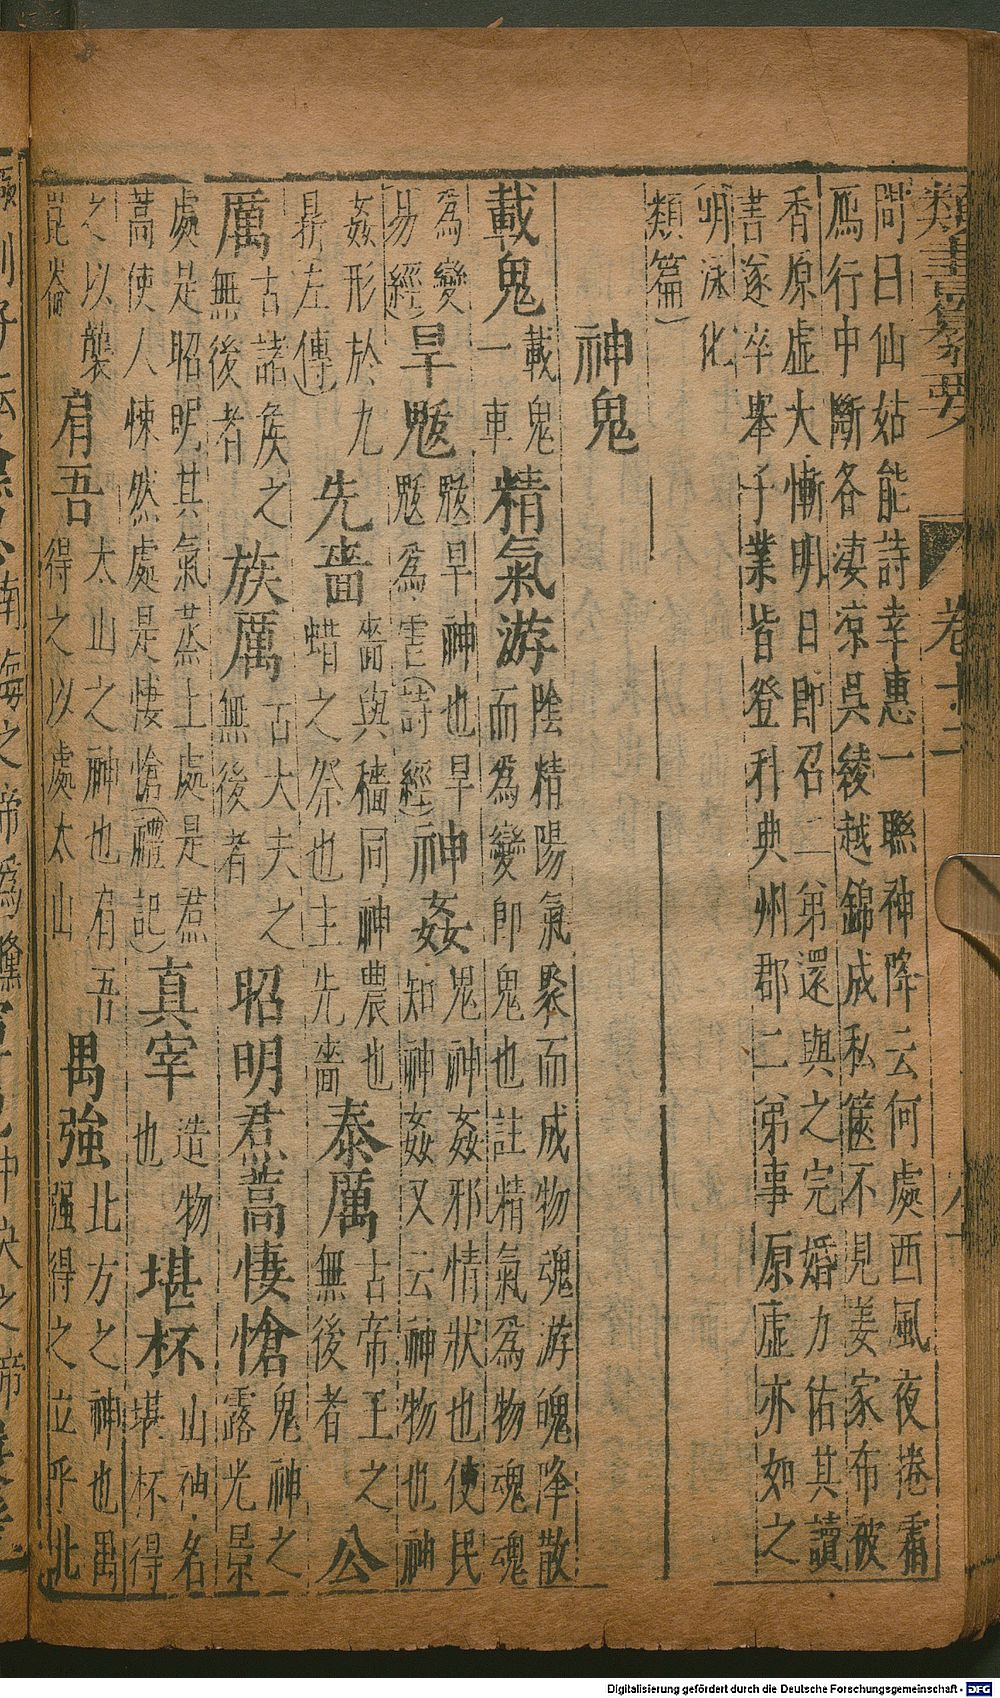 類書纂要 卷十二
問曰仙姑能詩幸惠一聯神降云何處西風夜捲霜
鴈行中斷各淒凉吳綾越錦成私篋不見姜家布被
香原虛大慚明日即召二弟還與之完婚力佑其讀
書遂卒舉子業皆登科典州郡二弟事原虛亦如之
明泳化
類篇)
神鬼
載鬼 載鬼
一車 精氣游 陰精陽氣聚而成物魂游魄降散
而為變即鬼也註精氣為物魂魂
為變
易經) 旱魃 魃旱神也旱
魃為雩(詩經) 神姦 鬼神姦邪情狀也使民
知神姦又云神物也神
姦形於九
鼎左傳) 先嗇 嗇與穡同神農也
蜡之祭也主先嗇 泰厲 古帝王之
無後者 公
厲 古諸侯之
無後者 族厲 古大夫之
無後者 昭明焄蒿悽愴 鬼神之
露光景
處是昭明其氣蒸上處是焄
蒿使人悚然處是悽愴(禮記) 真宰 造物
也 堪杯 山神名
堪杯得
之以襲
崑崙 肩吾 太山之神也肩吾
得之以處太山 禺強 北方之神也禺
强得之立乎北
Digitalisierung gefördert durch die Deutsche Forschungsgemeinschaft - DFG